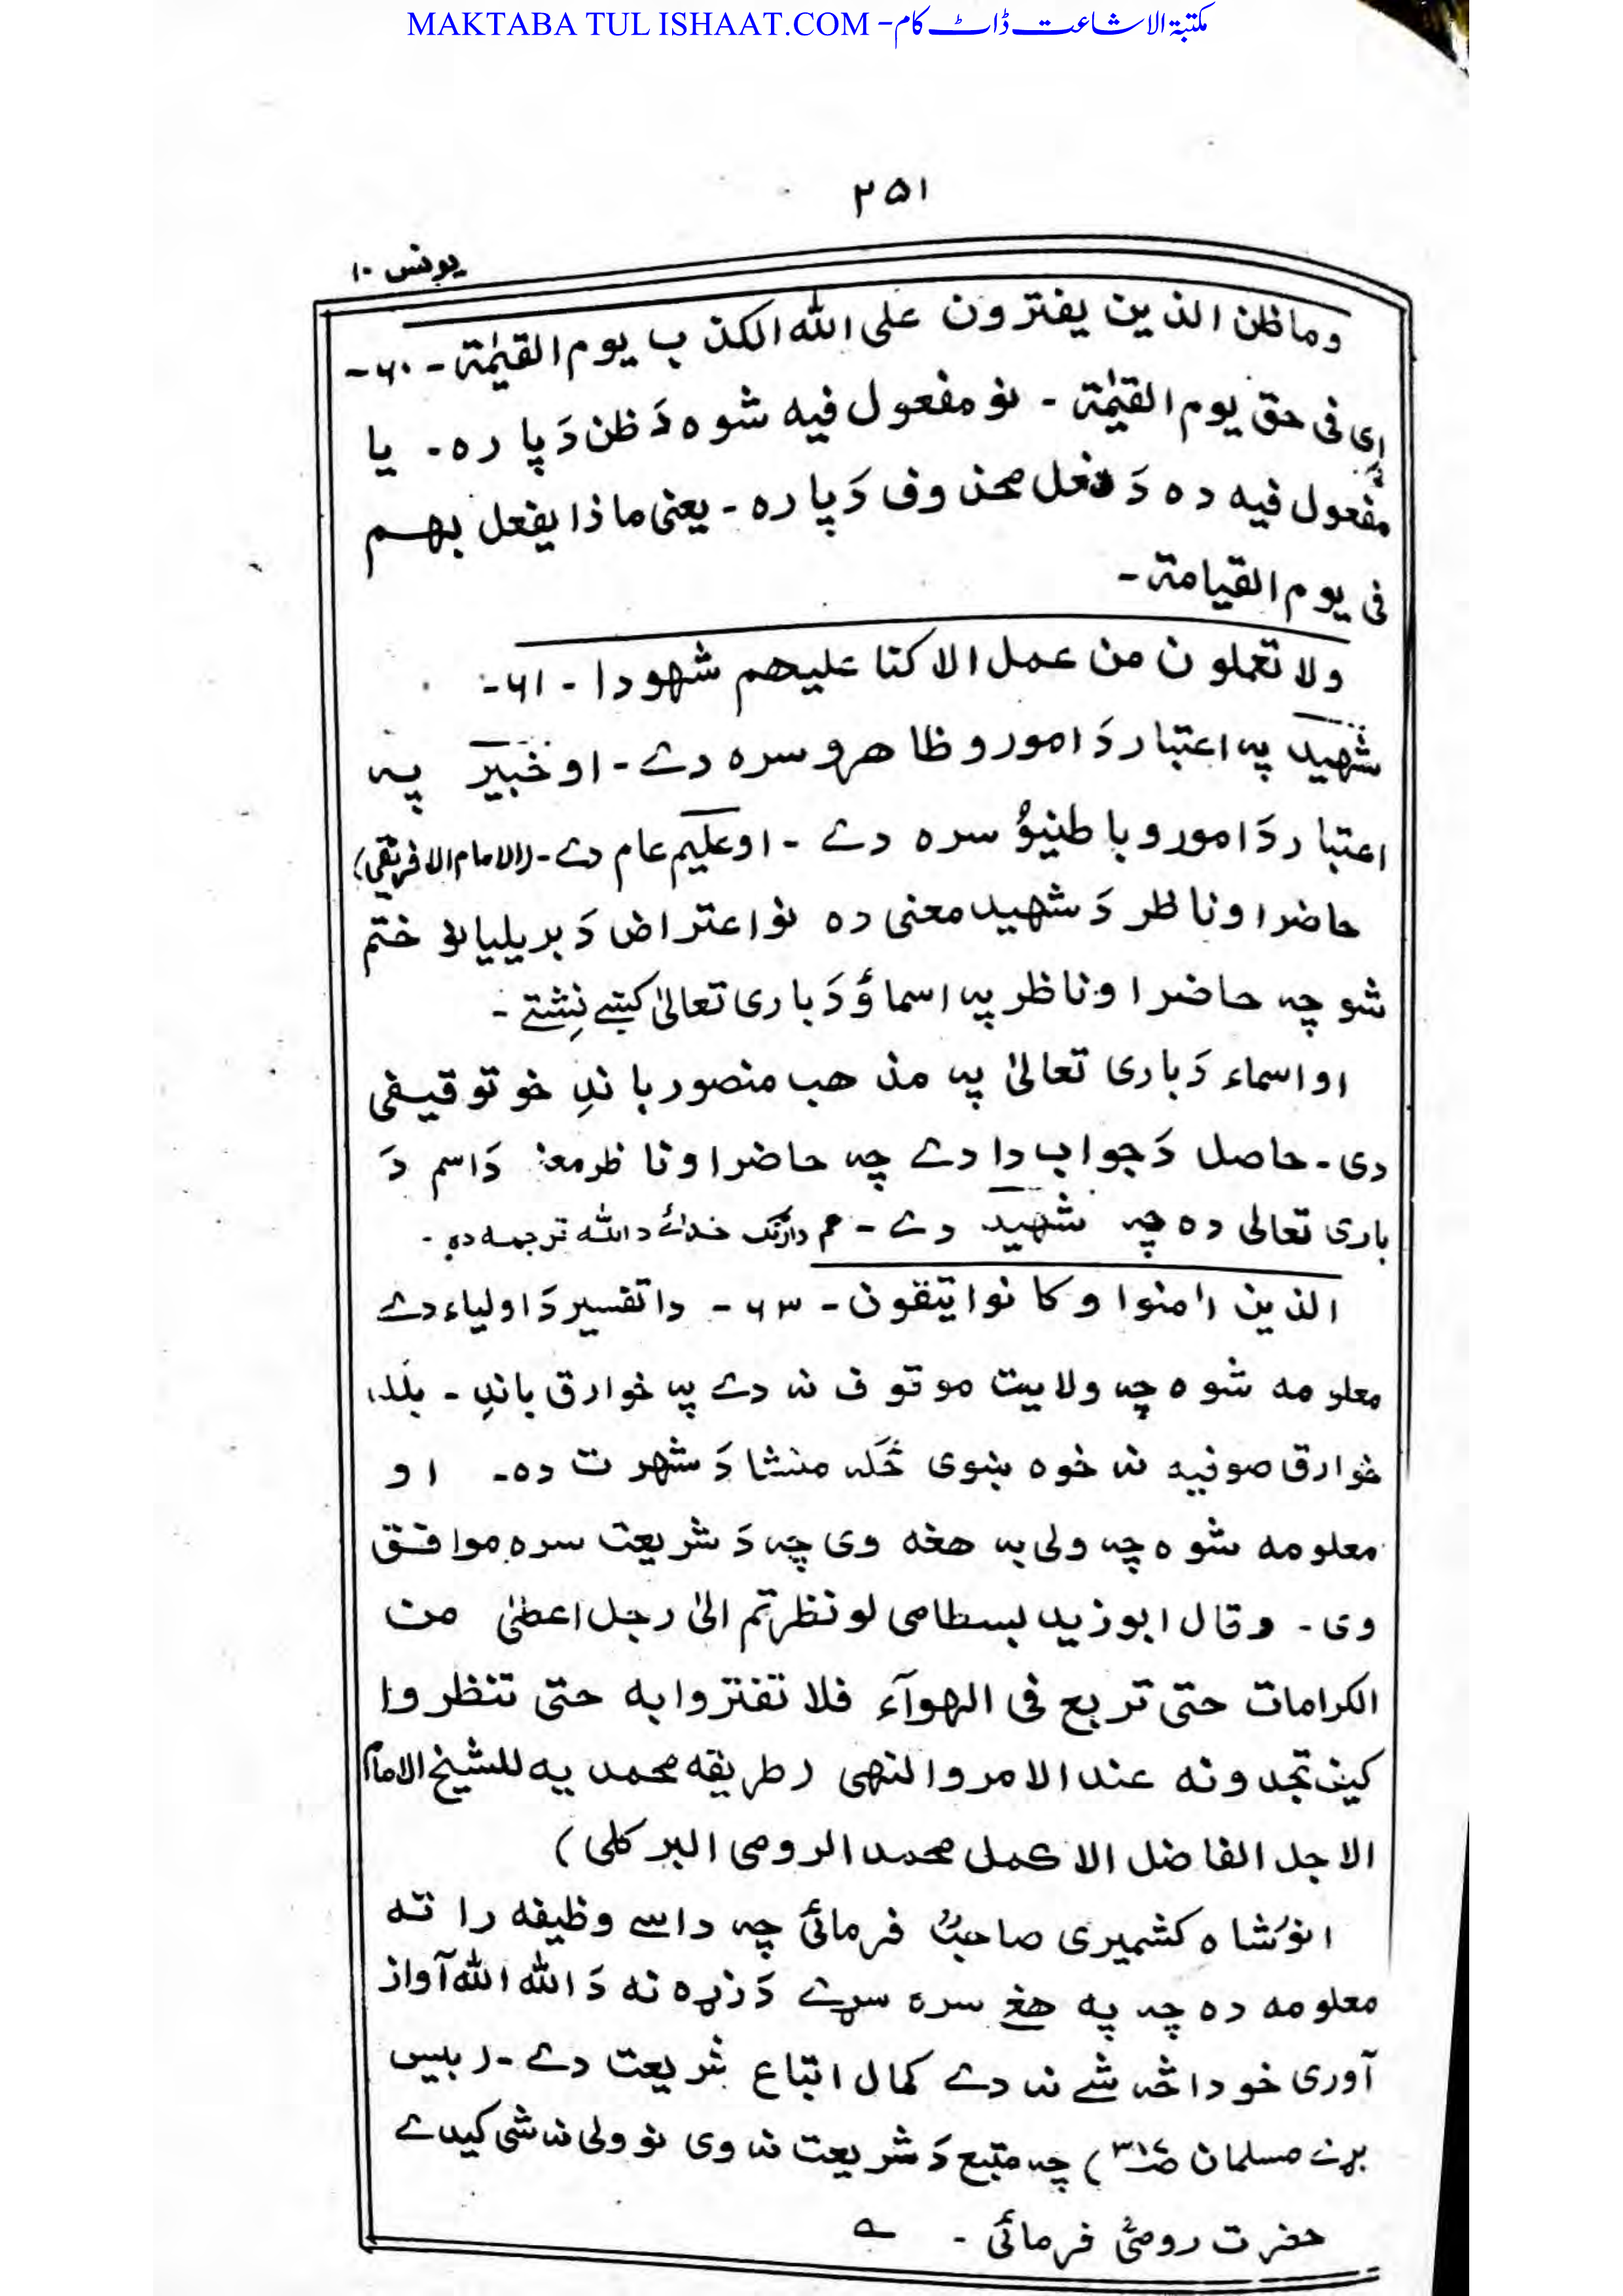 MAKTABA TUL ISHAAT.COM - مکتبۃ الاشاعت ڈاٹ کام
۲۵۱
یونس ۱۰
وما ظن الذین یفترون علی الله الکذب یوم القیٰمة - ۶۰ -
ای فی حق یوم القیٰمة - نو مفعول فیه شوه دَ ظن دَ پاره - یا
مفعول فیه ده دَ فعل محذوف دَ پاره - یعنی ما ذا یفعل بهم
فی یوم القیامة -
ولا تعملون من عمل الا کنا علیهم شهودا - ۶۱ -
شهید په اعتبار دَ امورو ظاهرو سره دے - او خبیر په
اعتبار دَ امورو باطنیوُ سره دے - او علیم عام دے - (الامام الافریقی)
حاضر او ناظر دَ شهید معنی ده نو اعتراض دَ بریلیانو ختم
شو چه حاضر او ناظر په اسماؤ دَ باری تعالیٰ کښے نِشتے -
او اسماء دَ باری تعالیٰ په مذهب منصور باندِ خو توقیفی
دی - حاصل دَ جواب دا دے چه حاضر او ناظر معنٰے دَ اسم دَ
باری تعالی ده چه شهید دے - هم دارنګ خدائے د الله ترجمه ده -
الذین اٰمنوا وکانوا یتقون - ۶۳ - دا تفسیر دَ اولیاء دے
معلومه شوه چه ولایت موقوف نه دے په خوارق باندِ - بلکه
خوارق صوفیه نه خوه ښوی ځکه منشا دَ شهرت ده - او
معلومه شوه چه ولی به هغه وی چه دَ شریعت سره موافق
وی - وقال ابو زید بسطامی لو نظرتم الیٰ رجل اعطیٰ من
الکرامات حتی تربع فی الهوآء فلا تفتروا به حتی تنظروا
کیف تجدونه عند الامر والنهی (طریقه محمدیه للشیخ الامام
الاجل الفاضل الاکمل محمد الرومی البرکلی)
انور شاه کشمیری صاحبؒ فرمائی چه داسے وظیفه را ته
معلومه ده چه په هغے سره سړے دَ زړه نه دَ الله الله آواز
آوری خو دا څه شے نه دے کمال اتباع شریعت دے - (بیس
بڑے مسلمان ص۳۱۷) چه متبع دَ شریعت نه وی نو ولی نه شی کیدے
حضرت رومیؒ فرمائی -